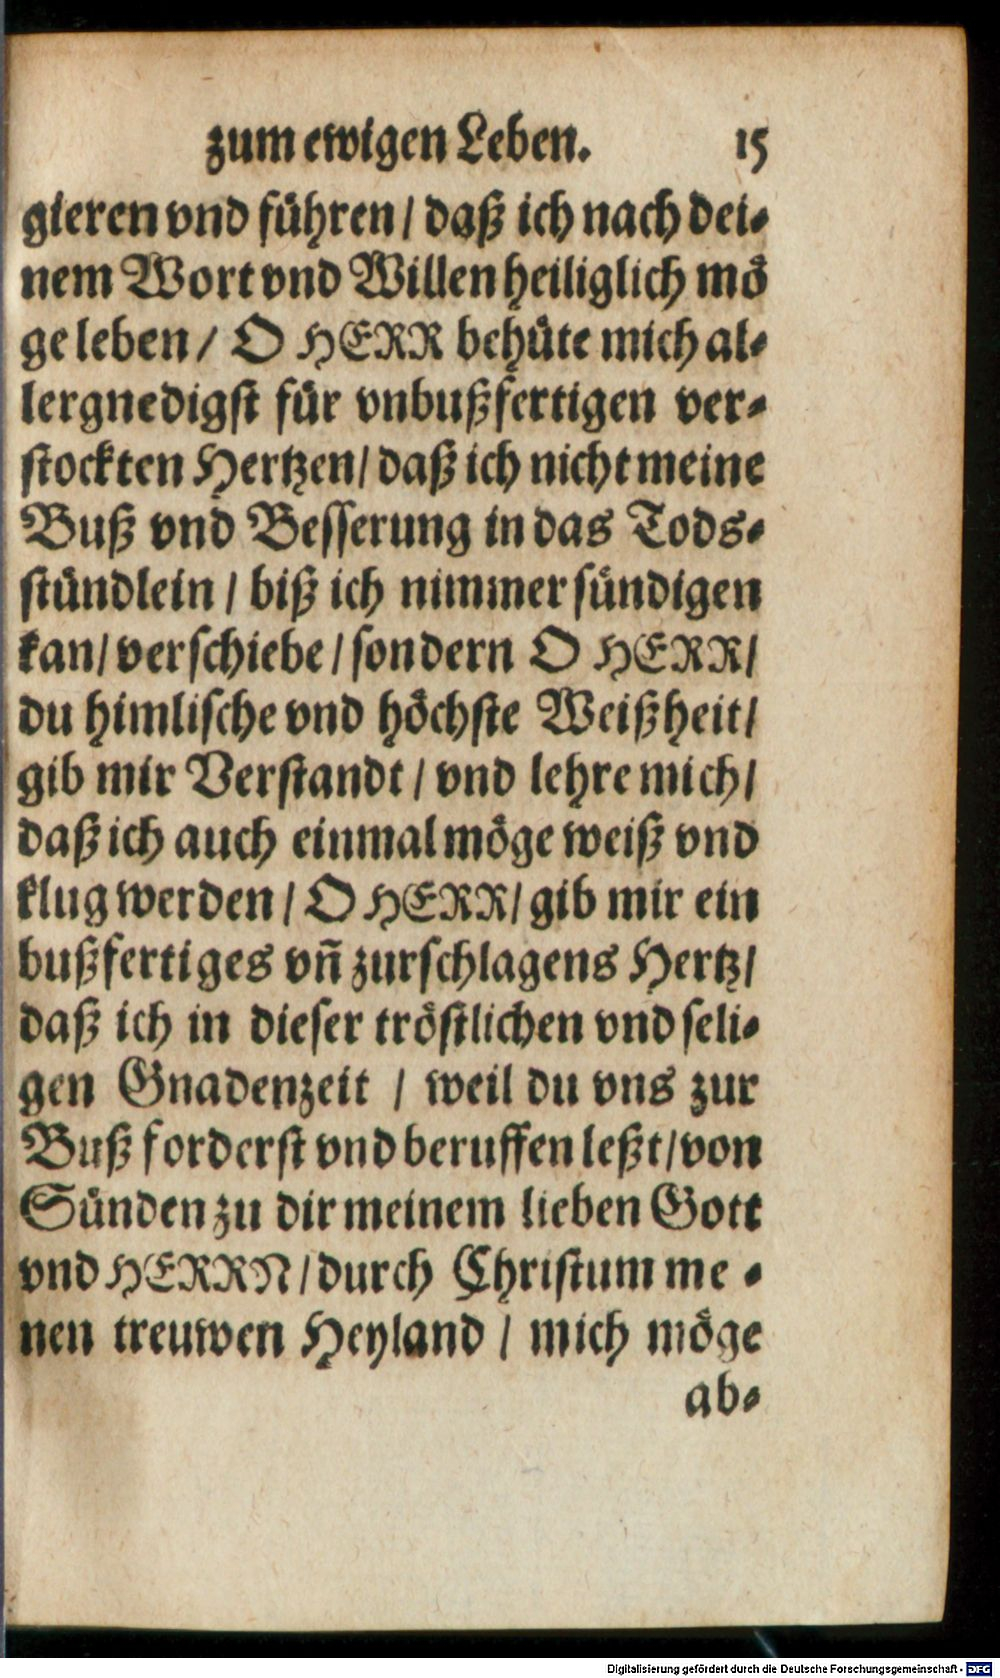 zum ewigen Leben. 15
gieren vnd führen / daß ich nach dei-
nem Wort vnd Willen heiliglich mö
ge leben / O HERR behüte mich al-
lergnedigst für vnbußfertigen ver-
stockten Hertzen / daß ich nicht meine
Buß vnd Besserung in das Tods-
stündlein / biß ich nimmer sündigen
kan / verschiebe / sondern O HERR /
du himlische vnd höchste Weißheit /
gib mir Verstandt / vnd lehre mich /
daß ich auch einmal möge weiß vnd
klug werden / O HERR / gib mir ein
bußfertiges vñ zurschlagens Hertz /
daß ich in dieser tröstlichen vnd seli-
gen Gnadenzeit / weil du vns zur
Buß forderst vnd beruffen leßt / von
Sünden zu dir meinem lieben Gott
vnd HERRN / durch Christum me -
nen treuwen Heyland / mich möge
ab-
Digitalisierung gefördert durch die Deutsche Forschungsgemeinschaft - DFG